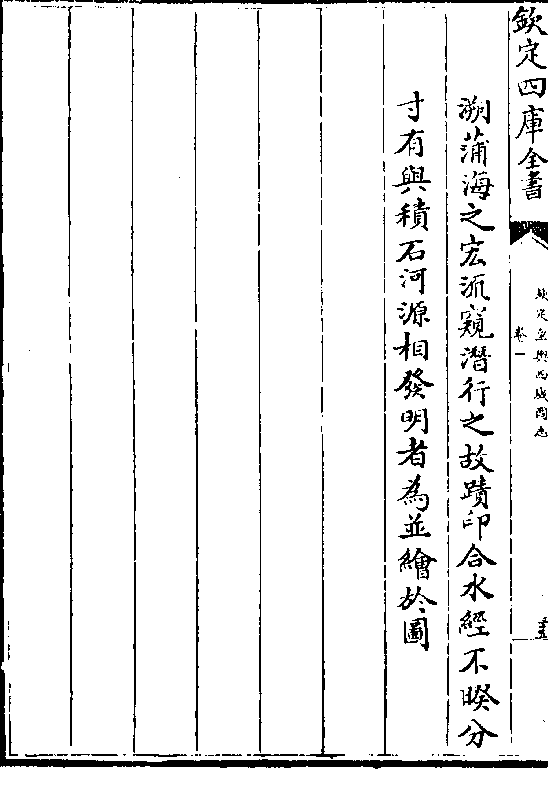 欽定四庫全書
欽定皇輿西域圖志
卷一
溯蒲海之宏流窺潛行之故蹟印合水經不暌分
寸有與積石河源相發明者為並繪於圖